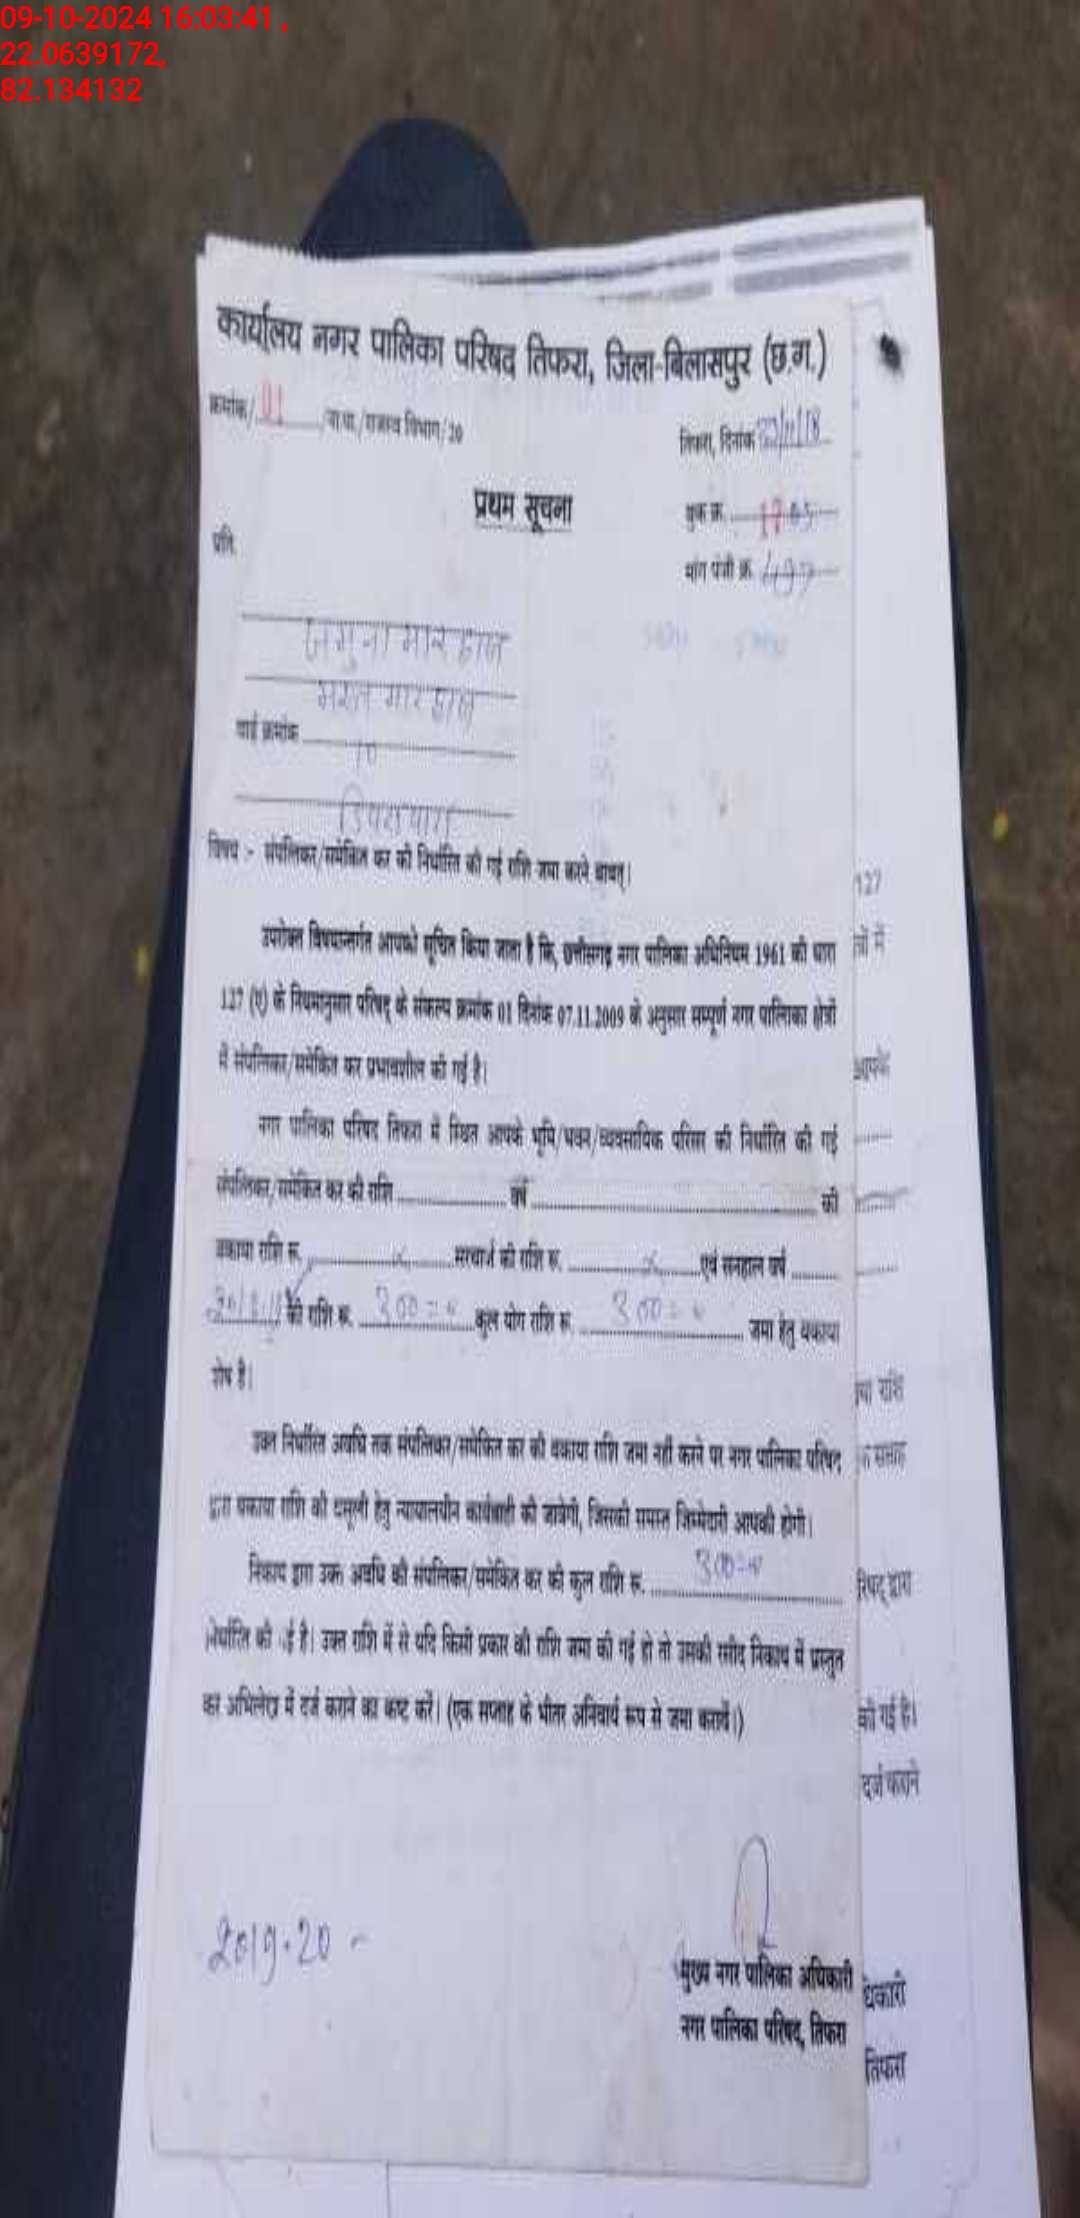 09-10-2024 16:03:41 ,
22.0639172,
82.134132
कार्यालय नगर पालिका परिषद तिफरा, जिला-बिलासपुर (छ.ग.)
क्रमांक/ 01 /न.पा./राजस्व विभाग/20
तिफरा, दिनांक /11/18
प्रथम सूचना
बुक क्र.
प्रति,
मांग पंजी क्र.
जमुना मारडाज
वार्ड क्रमांक
10
विषय :- संपत्तिकर/समेकित कर की निर्धारित की गई राशि जमा करने बाबत्।
उपरोक्त विषयान्तर्गत आपको सूचित किया जाता है कि, छत्तीसगढ़ नगर पालिका अधिनियम 1961 की धारा
127 (ए) के नियमानुसार परिषद् के संकल्प क्रमांक 01 दिनांक 07.11.2009 के अनुसार सम्पूर्ण नगर पालिका क्षेत्रों
में संपत्तिकर/समेकित कर प्रभावशील की गई है।
नगर पालिका परिषद तिफरा में स्थित आपके भूमि/भवन/व्यवसायिक परिसर की निर्धारित की गई
संपत्तिकर/समेकित कर की राशि वर्ष की
बकाया राशि रू. x सरचार्ज की राशि रू. x एवं सनहाल वर्ष
की राशि रू. 300= कुल योग राशि रू. 300= जमा हेतु बकाया
शेष है।
उक्त निर्धारित अवधि तक संपत्तिकर/समेकित कर की बकाया राशि जमा नहीं करने पर नगर पालिका परिषद
द्वारा बकाया राशि की वसूली हेतु न्यायालयीन कार्यवाही की जावेगी, जिसकी समस्त जिम्मेदारी आपकी होगी।
निकाय द्वारा उक्त अवधि की संपत्तिकर/समेकित कर की कुल राशि रू. 300=
की ई है। उक्त राशि में से यदि किसी प्रकार की राशि जमा की गई हो तो उसकी रसीद निकाय में प्रस्तुत
कर अभिलेख में दर्ज कराने का कष्ट करें। (एक सप्ताह के भीतर अनिवार्य रूप से जमा करावें।)
2019-20 -
मुख्य नगर पालिका अधिकारी
नगर पालिका परिषद, तिफरा
127
त्रों में
आपके
राशि
रिषद् द्वारा
की गई है।
दर्ज कराने
धिकारी
तिफरा